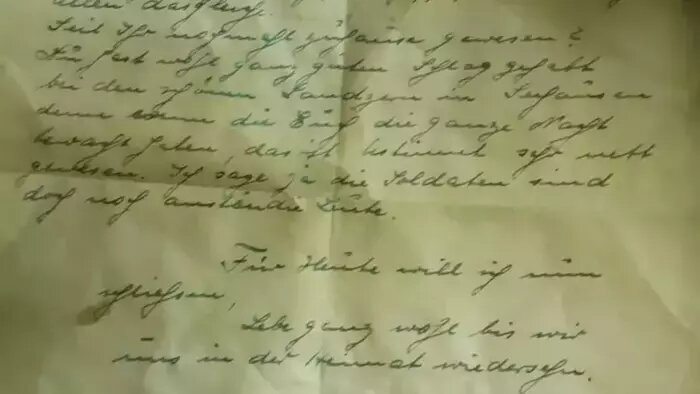 allen dasgleiche.
Seid Ihr nochmehl zuhause gewesen?
Du hast wohl ganz guten Schlag gehabt
bei den schönen Landzern in
denn wenn die Euch die ganze Nacht
bewacht haben, das ist bestimmt sehr nett
gewesen. Ich sage ja die Soldaten sind
doch noch anständie Leute.
Für Heute will ich nun
schliehsen,
Lebe ganz wohl bis wir
uns in der Heimat wiedersehn.